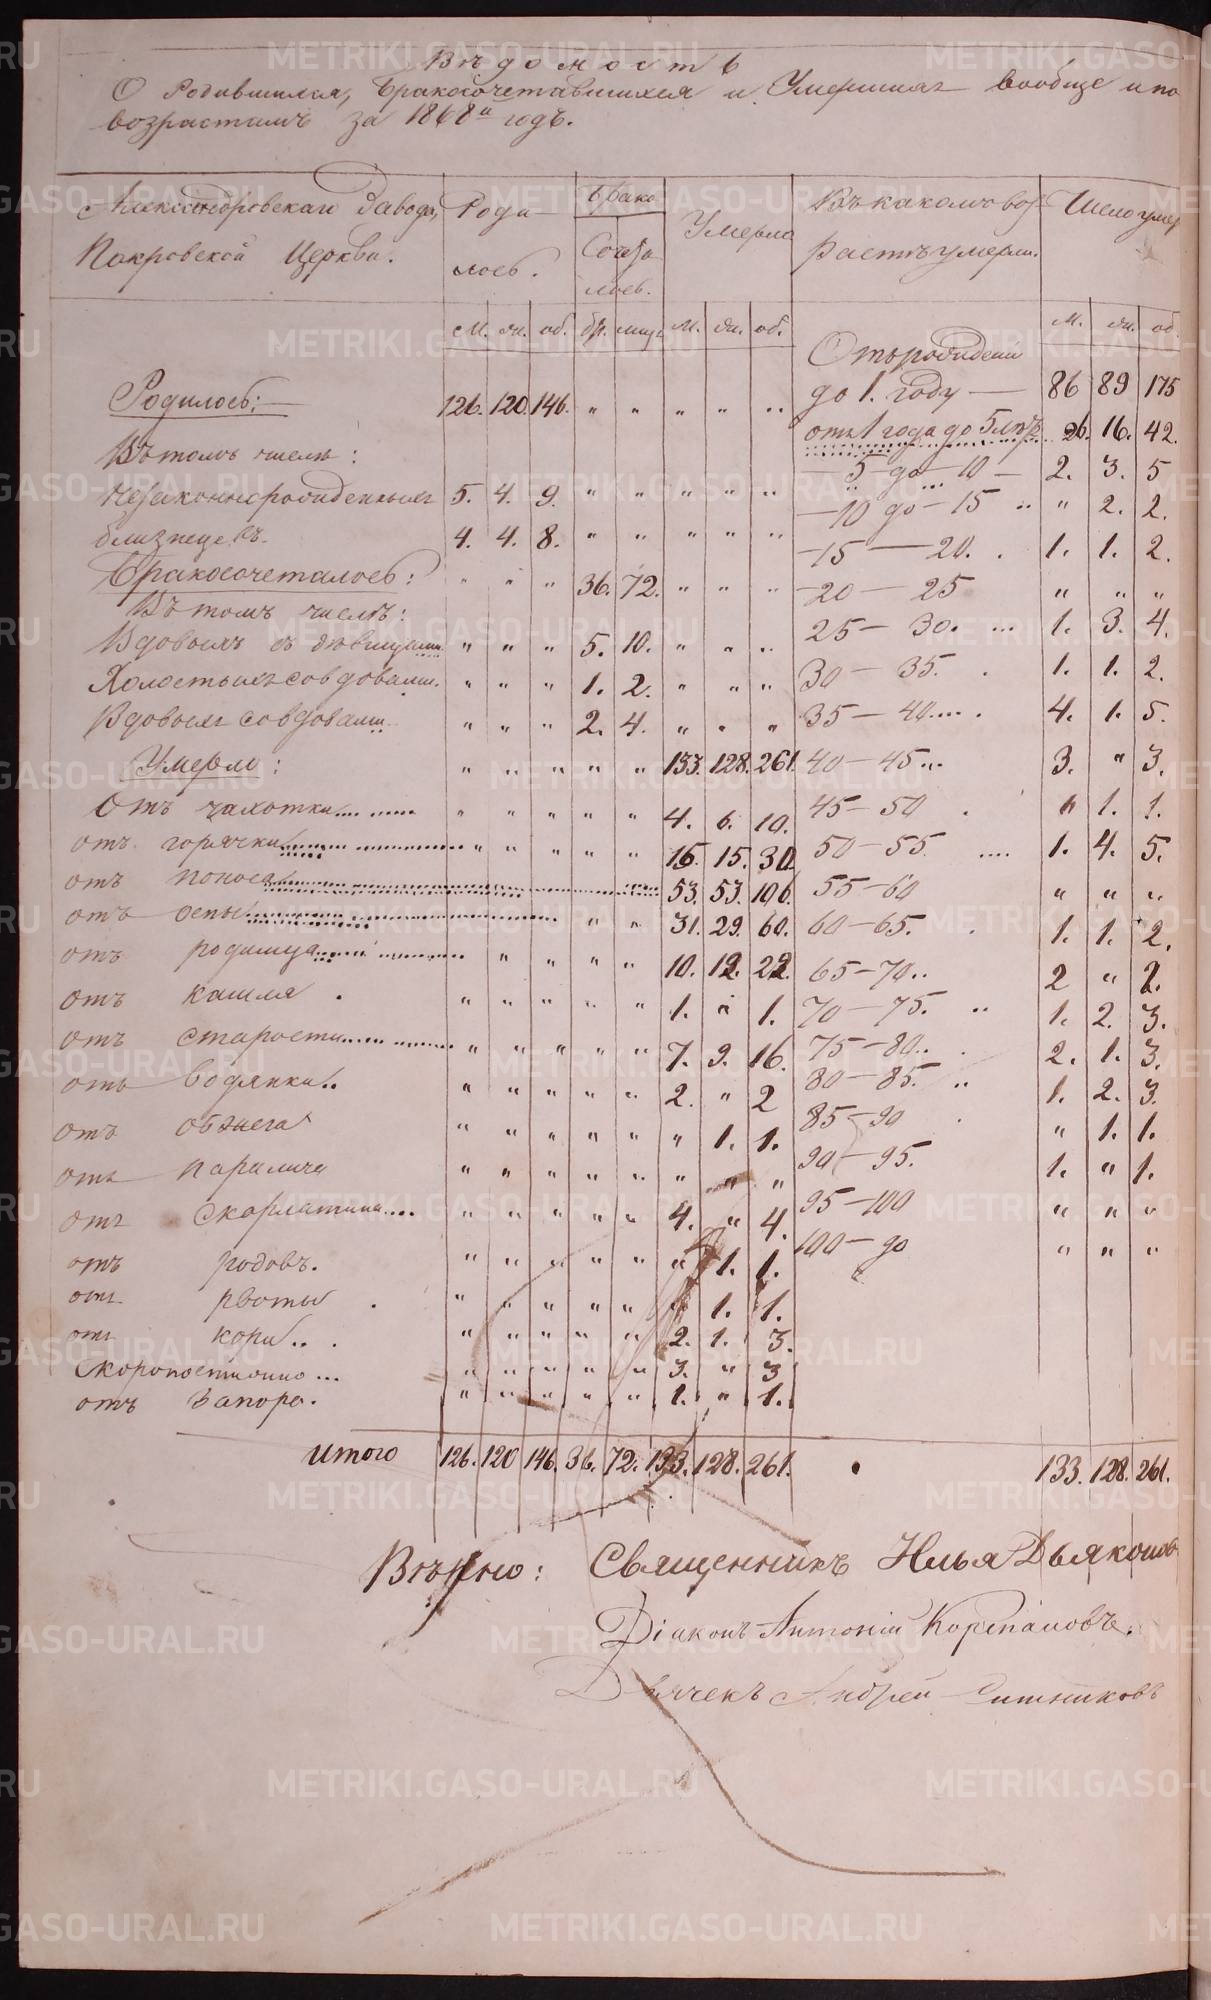 Вѣдомость
О Родившихся, Бракосочетавшихся и Умершихъ вообще и по
возрастамъ за 1868й годъ.
Александровскаго Завода, Покровской Церкви. | Родилось. | Брако Сочеталось. | Умерло | Въ какомъ возрастѣ умерли. | Число умер
м. | ж. | об. | бр. | лиц. | м. | ж. | об. | м. | ж. | об.
Родилось: 126. 120. 146. " " " " " Отъ рождения до 1. году — 86 89 175
Въ томъ числѣ: отъ 1 года до 5 лѣтъ 26. 16. 42.
Незаконнорожденныхъ 5. 4. 9. " " " " " 5 до 10 — 2. 3. 5
близнецевъ. 4. 4. 8. " " " " " — 10 до — 15 " 2. 2.
Бракосочеталось: " " " 36. 72. " " " — 15 — 20. 1. 1. 2.
Въ томъ числѣ: — 20 — 25 " " "
Вдовыхъ съ дѣвицами " " " 5. 10. " " " 25 — 30. 1. 3. 4.
Холостыхъ со вдовами. " " " 1. 2. " " " 30 — 35. 1. 1. 2.
Вдовыхъ со вдовами " " " 2. 4. " " " 35 — 40 4. 1. 5.
Умерло: " " " " " 133. 128. 261. 40 — 45 3. " 3.
Отъ чахотки " " " " " 4. 6. 10. 45 — 50 " 1. 1.
отъ горячки " " " " " 15. 15. 30. 50 — 55 1. 4. 5.
отъ поноса 53. 53. 106. 55 — 60 " " "
отъ оспы " " 31. 29. 60. 60 — 65. 1. 1. 2.
отъ родимца " " " " 10. 12. 22. 65 — 70.. 2 " 2.
отъ кашля " " " " " 1. " 1. 70 — 75. 1. 2. 3.
отъ старости " " " " " 7. 9. 16. 75 — 80.. 2. 1. 3.
отъ водянки.. " " " " " 2. " 2 80 — 85. 1. 2. 3.
отъ обжега " " " " " " 1. 1. 85 — 90 " 1. 1.
отъ паралича " " " " " " " " 90 — 95. 1. " 1.
отъ скорлатины.... " " " " " 4. " 4. 95 — 100 " " "
отъ родовъ. " " " " " " 1. 1. 100 — до " " "
отъ рвоты " " " " " " 1. 1.
отъ кори.. " " " " " 2. 1. 3.
Скоропостижно ... " " " " " 3. " 3
отъ запора. " " " " " 1. " 1.
Итого 126. 120 146. 36. 72. 133. 128. 261. 133. 128. 261.
Вѣрно: Священникъ Илья Дьяконов
Діаконъ Антоній Корепановъ.
Дьячекъ Андрей Ситниковъ
METRIKI.GASO-URAL.RU